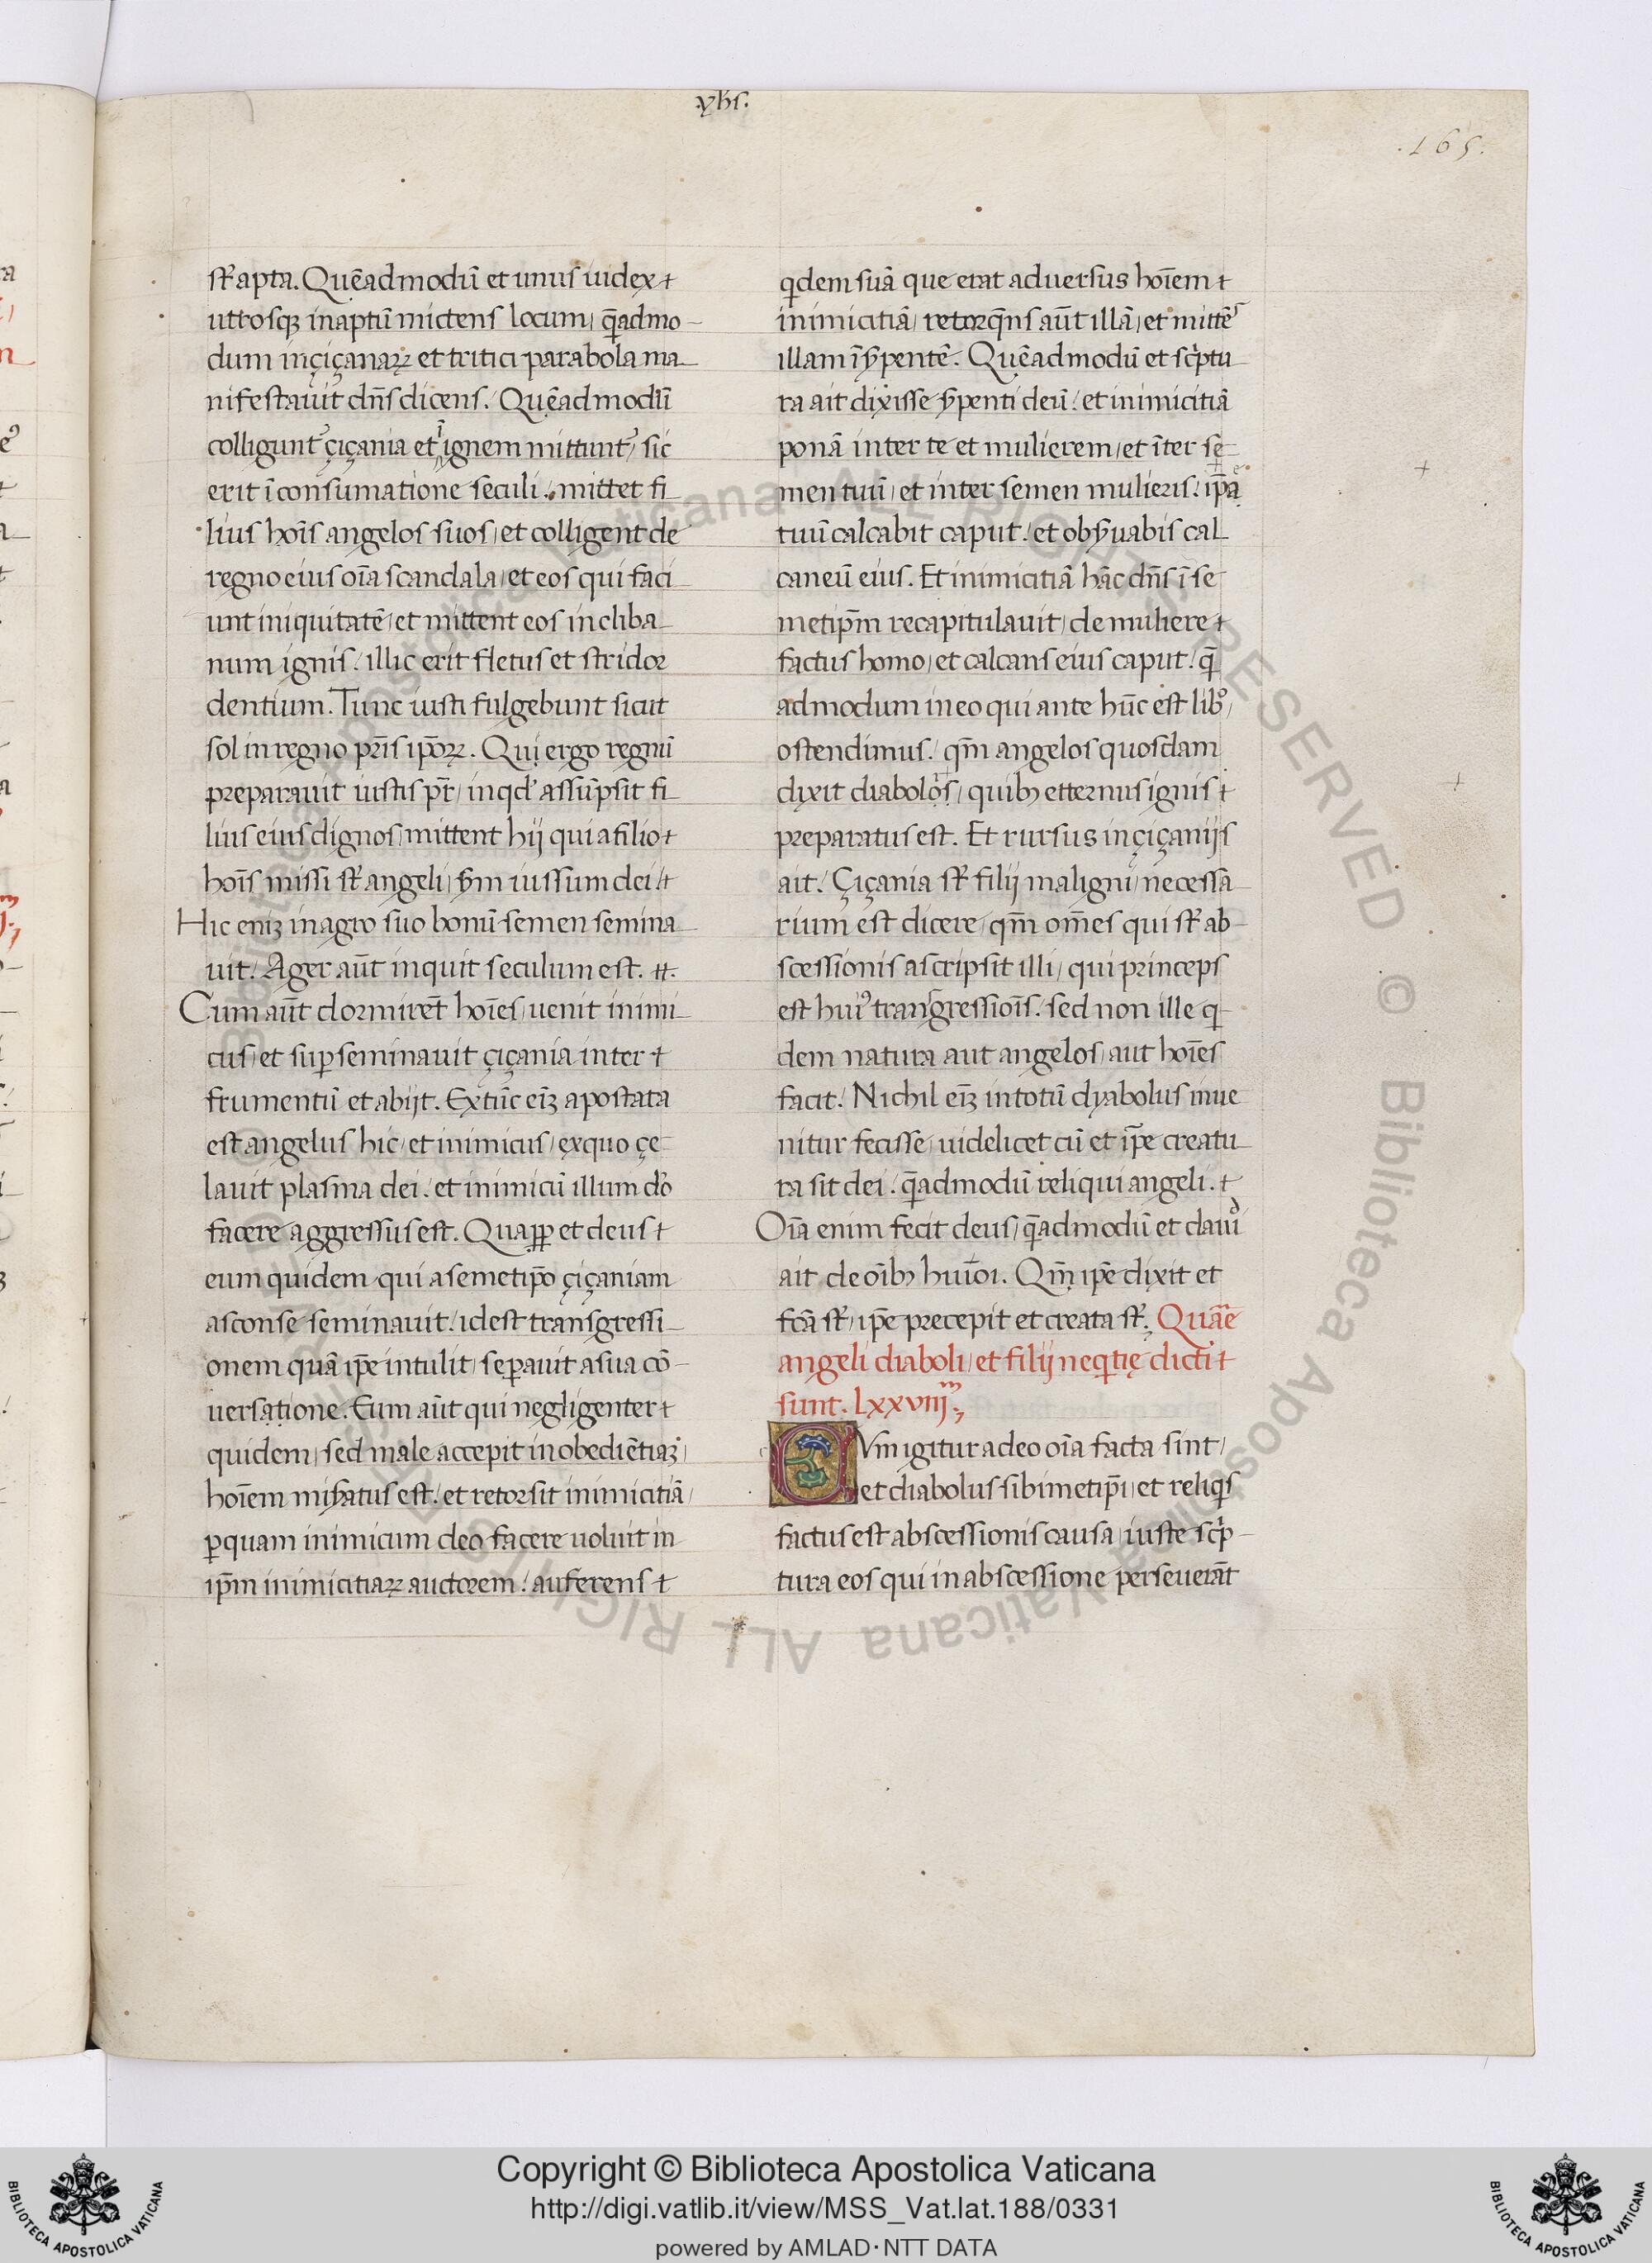 .yhs.
.165.
sr̄t apta. Quēadmodū et unus iudex
utrosqꝫ in aptū mictens locum / q̄admo-
dum in çiçanaꝝ et tritici parabola ma-
nifestavit dn̄s dicens. Quēadmodū
colligunt᷑ çiçania et ī ignem mittunt᷑ / sic
erit ī consumatione seculi. mittet fi-
lius hoīs angelos suos / et colligent de
regno eius oīa scandala / et eos qui faci-
unt iniquitatē / et mittent eos in cliba-
num ignis. illic erit fletus et stridor
dentium. Tunc iusti fulgebunt sicut
sol in regno pr̄is ip̄oꝝ. Qui ergo regnū
preparavit iustis pr̄ / in qd̓ assūpsit fi-
lius eius dignos / mittent hij qui a filio
hoīs missi sr̄t angeli / ẜm iussum dei.
Hic eniꝫ in agro suo bonū semen semina-
uit. Ager aūt inquit seculum est.
Cum aūt dormirēt hoīes / uenit inimi-
cus / et suꝑseminauit çiçania inter
frumentū et abijt. Extūc eīꝫ apostata
est angelus hic / et inimicus / ex quo çe-
lauit plasma dei. et inimicū illum d̓o
facere aggressus est. Quaꝓꝑ et deus
eum quidem qui a semetip̄o çiçaniam
asconse seminauit. idest transgressi-
onem quā ip̄e intulit / seꝑauit a sua cō-
uersatione. Eum aūt qui negligenter
quidem / sed male accepit inobediētiaꝫ /
hoīem miẜatus est. et retorsit inimicitiā /
ꝑ quam inimicum deo facere uoluit in
ip̄m inimicitiaꝝ auctorem. auferens
qͥdem suā que erat adversus hoīem
inimicitiā / retorq̄ns aūt illā / et mittēs
illam ī ẜpentē. Quēadmodū et sc̓ptu-
ra ait dixisse ẜpenti deū. et inimicitiā
ponā inter te et mulierem / et īter se-
men tuū / et inter semen mulieris. ip̄a
tuū calcabit caput. et obẜuabis cal-
caneū eius. Et inimicitiā hāc dn̄s ī se-
metip̄m recapitulauit / de muliere
factus homo / et calcans eius caput. q̄
admodum in eo qui ante hūc est libͦ /
ostendimus. qm̄ angelos quosdam
dixit diabolos / quibꝫ etternus ignis
preparatus est. Et rursus in çiçanijs
ait. Çiçania sr̄t filij maligni / necessa-
rium est dicere / qm̄ om̄es qui sr̄t ab-
scessionis ascripsit illi / qui princeps
est huiꝰ transgressiois̄. sed non ille qͥ-
dem natura aut angelos / aut hoīes
facit. Nichil eīꝫ in totū dyabolus inue
nitur fecisse / uidelicet cū et ip̄e creatu-
ra sit dei. q̄admodū reliqui angeli.
Oīa enim fecit deus / q̄admodū et dauid
ait de oībꝫ huīoi. Qm̄ ip̄e dixit et
fc̄a sr̄t / ip̄e precepit et creata sr̄t. Quār̄e
angeli diaboli / et filij neqͥtię dicti
sunt. LXXVIIIIᵐ;
CVm igitur a deo oīa facta sint /
et diabolus sibimetip̄i / et reliqͥs
factus est abscessionis causa / iuste sc̓p-
tura eos qui in abscessione perseuerāt
Copyright © Biblioteca Apostolica Vaticana
http://digi.vatlib.it/view/MSS_Vat.lat.188/0331
powered by AMLAD·NTT DATA
BIBLIOTECA APOSTOLICA VATICANA
BIBLIOTECA APOSTOLICA VATICANA
© Biblioteca Apostolica Vaticana ALL RIGHTS RESERVED © Biblioteca Apostolica Vaticana ALL RIGHTS RESERVED